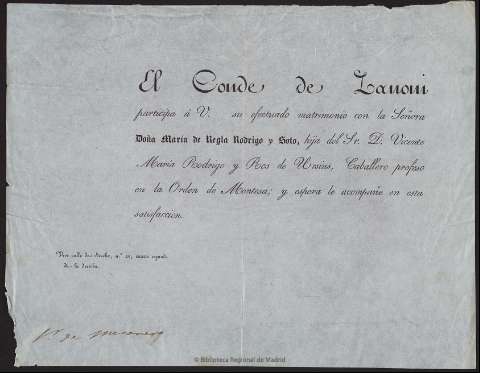 El Conde de Zanoni
participa á V. su efectuado matrimonio con la Señora
Doña María de Regla Rodrigo y Soto, hija del Sr. D. Vicente
María Rodrigo y Ros de Ursins, Caballero profeso
en la Orden de Montesa; y espera le acompañe en esta
satisfaccion.
Vive calle de
de la derecha.
© Biblioteca Regional de Madrid